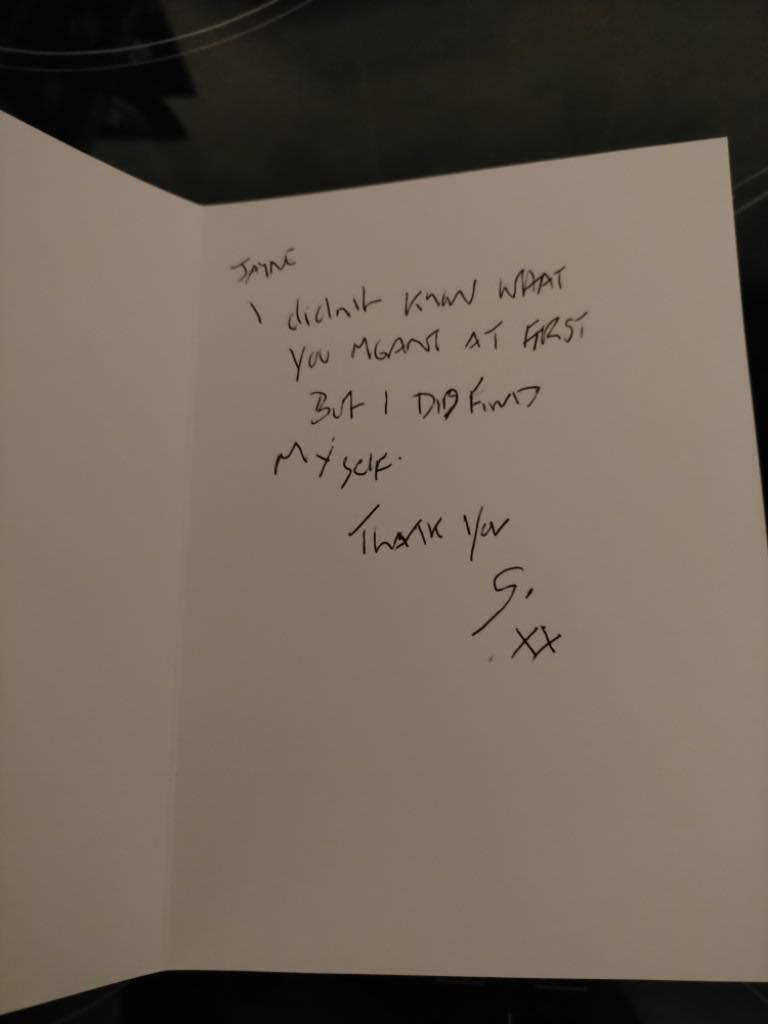 JAYNE
I didn't know WHAT
YOU MEANT AT FIRST
BUt I DID FIND
MYself.
THANK YOU
S.
XX